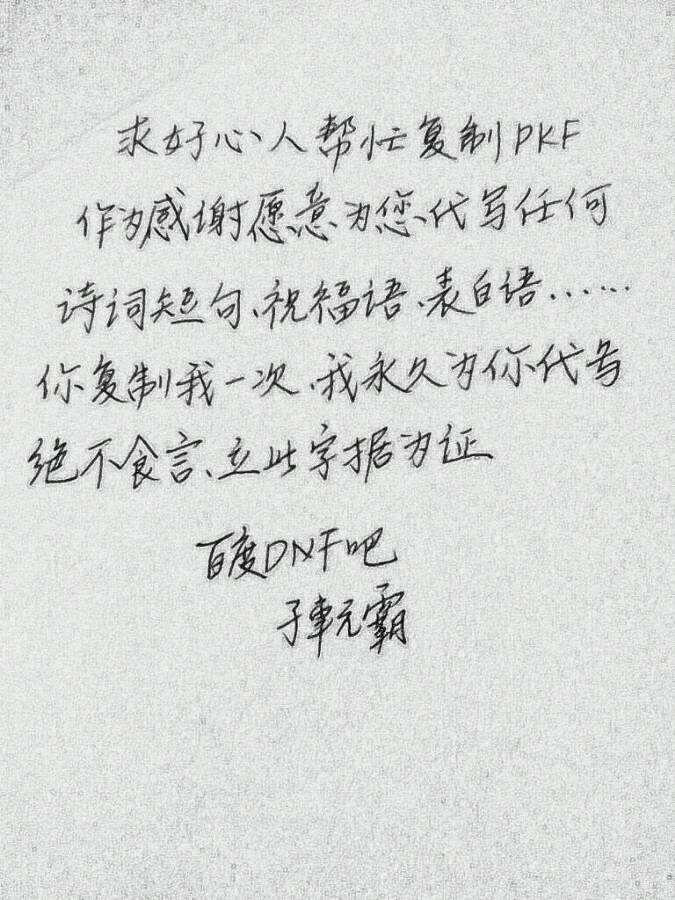 求好心人帮忙复制PKF
作为感谢愿意为您代写任何
诗词短句、祝福语、表白语……
你复制我一次、我永久为你代写
绝不食言、立此字据为证
百度DNF吧
元霸